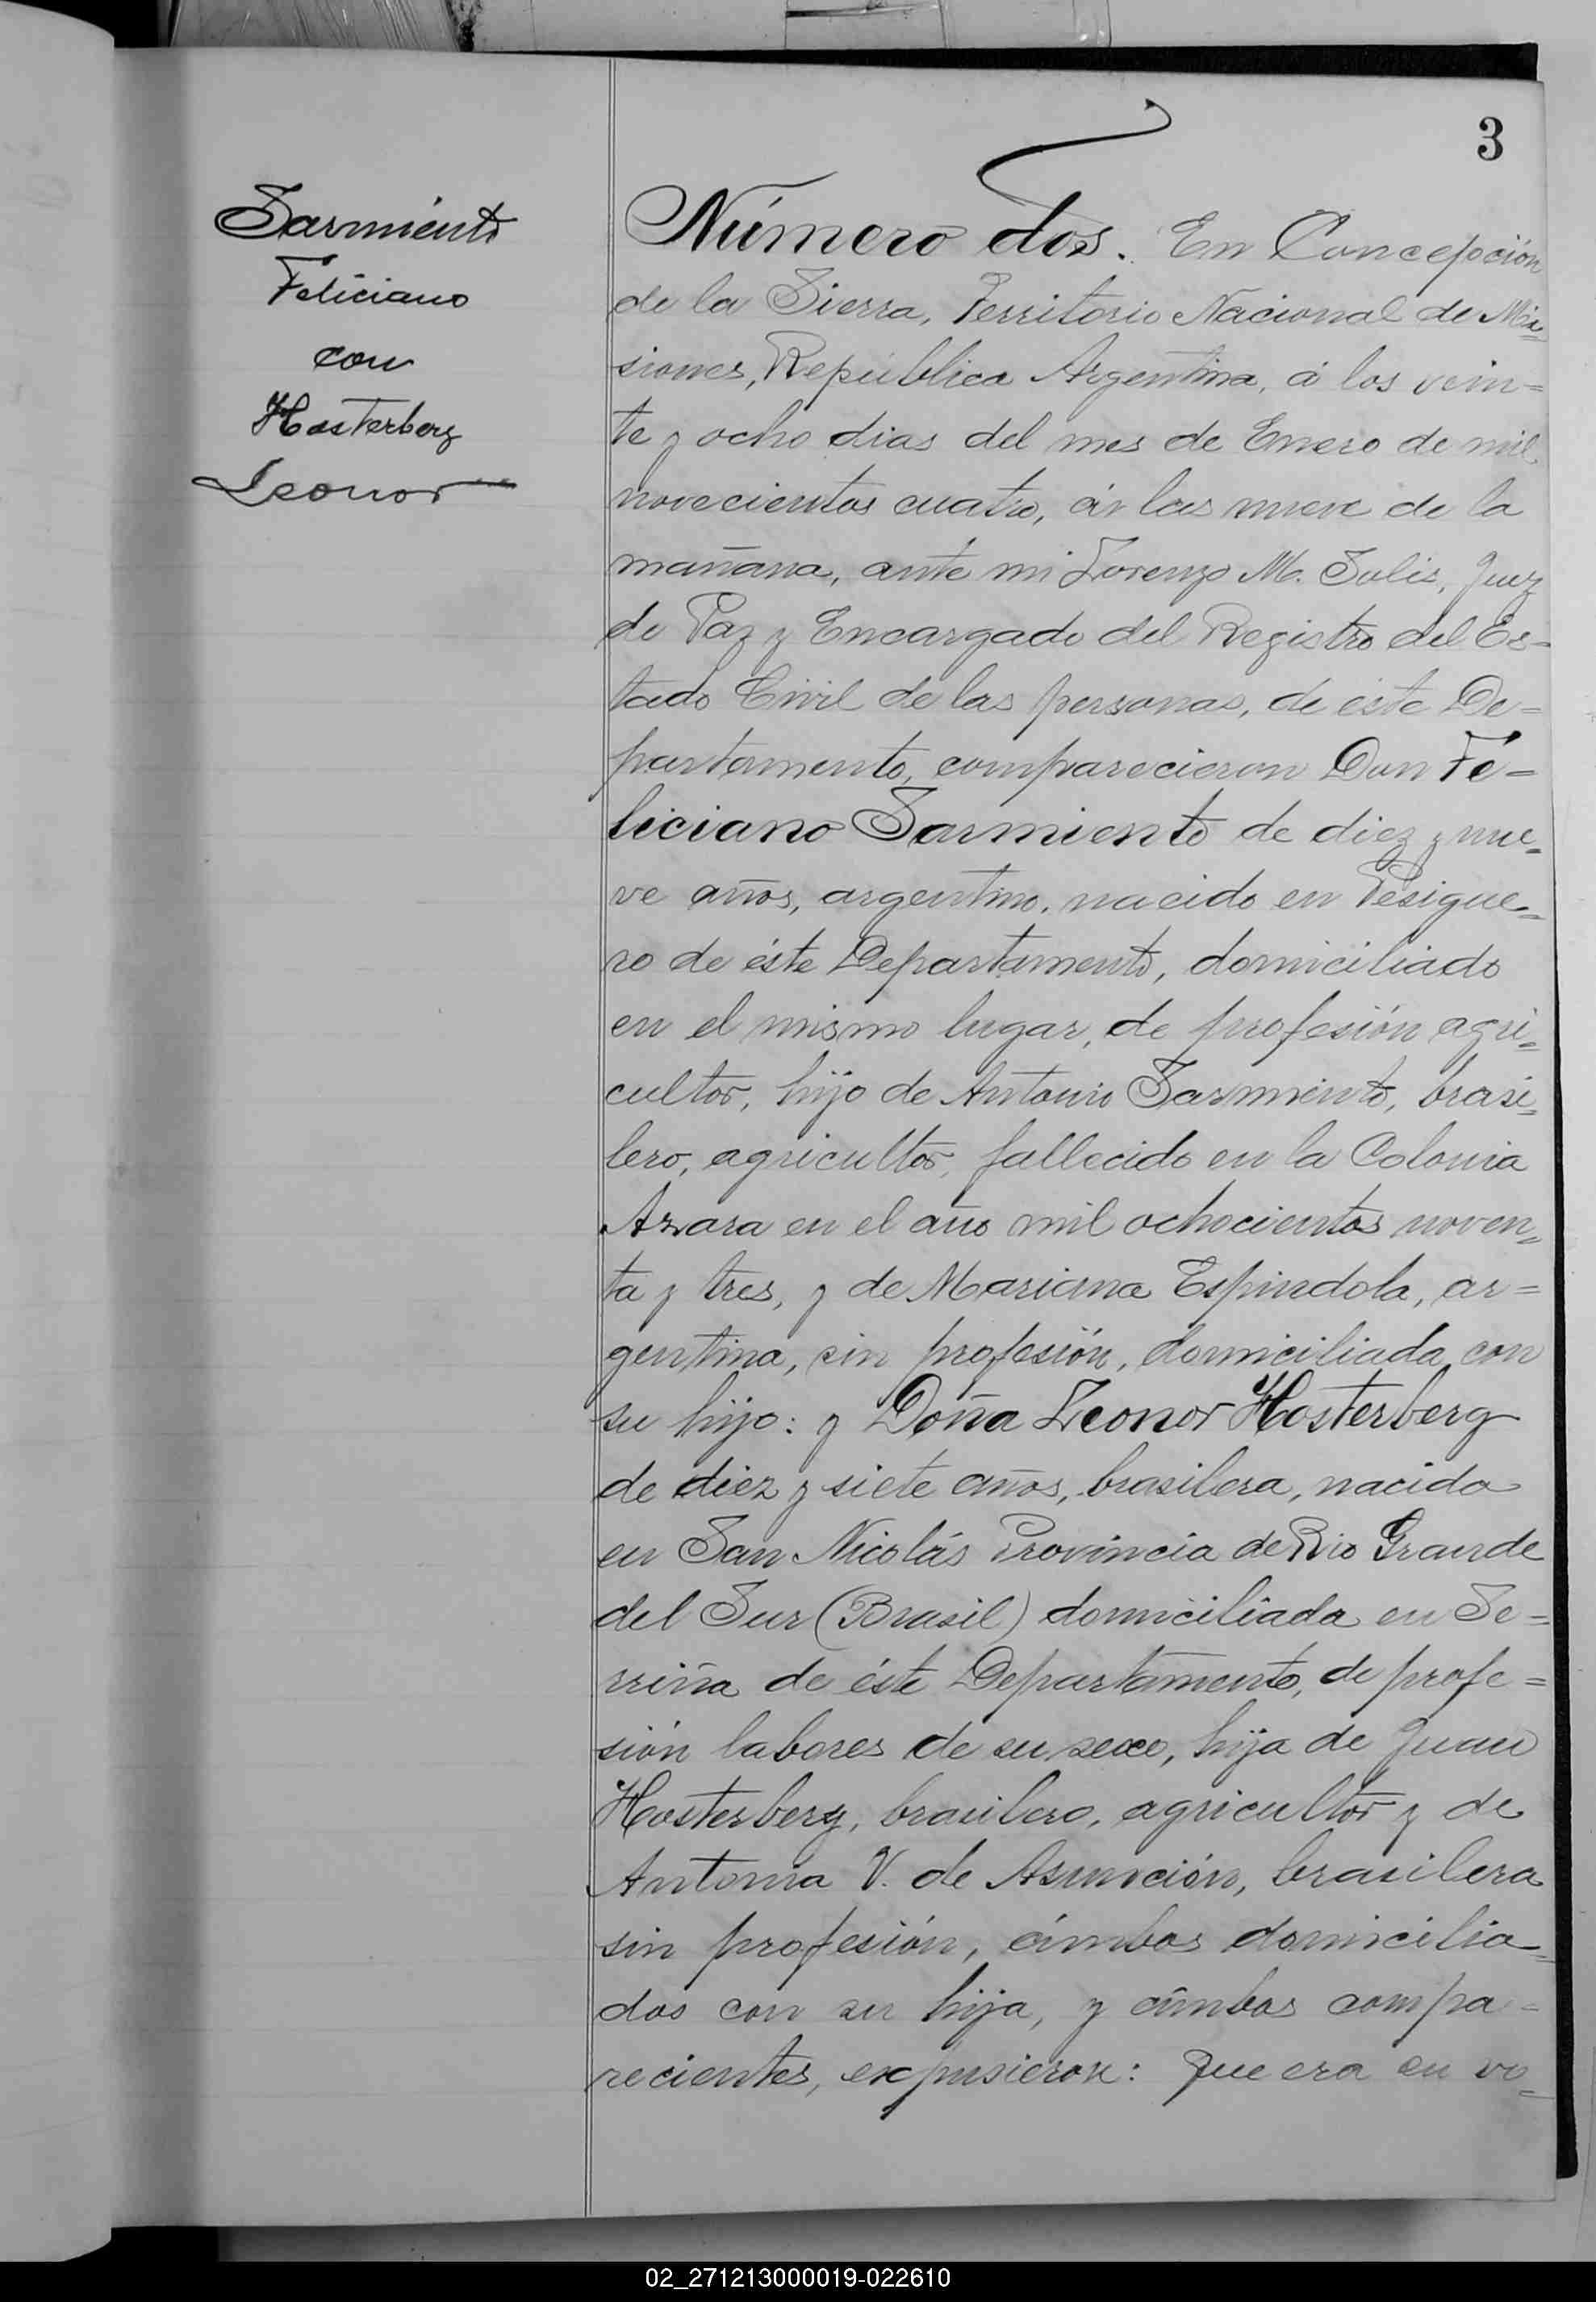 3
Sarmiento
Feliciano
con
Hosterberg
Leonor
Número dos. En Concepción
de la Sierra, Territorio Nacional de Mi=
siones, República Argentina, á los vein=
te y ocho dias del mes de Enero de mil
novecientos cuatro, á las nueve de la
mañana, ante mi Lorenzo M. Solis, Juez
de Paz y Encargado del Registro del Es=
tado Civil de las personas, de éste De=
partamento, comparecieron Don Fe=
liciano Sarmiento de diez y nue=
ve años, argentino, nacido en Persigue=
ro de éste Departamento, domiciliado
en el mismo lugar, de profesión agri=
cultor, hijo de Antonio Sarmiento, brasi=
lero, agricultor, fallecido en la Colonia
Azara en el año mil ochocientos noven=
ta y tres, y de Mariana Espindola, ar=
gentina, sin profesión, domiciliada con
su hijo: y Doña Leonor Hosterberg
de diez y siete años, brasilera, nacida
en San Nicolás Provincia de Rio Grande
del Sur (Brasil) domiciliada en Se=
rriña de éste Departamento, de profe=
sión labores de su sexo, hija de Juan
Hosterberg, brasilero, agricultor y de
Antonia V. de Asunción, brasilera
sin profesión, ámbos domicilia=
dos con su hija, y ámbos compa=
recientes, expusieron: Que era su vo=
02_271213000019-022610